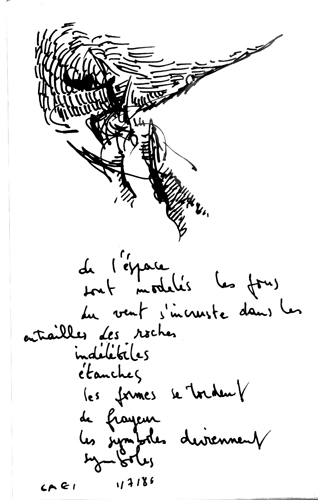 de l'espace
sont modelés les fous
du vent s'incruste dans les
entrailles des roches
indélébiles
étanches
les formes se tordent
de frayeur
les symboles deviennent
symboles
1/7/86